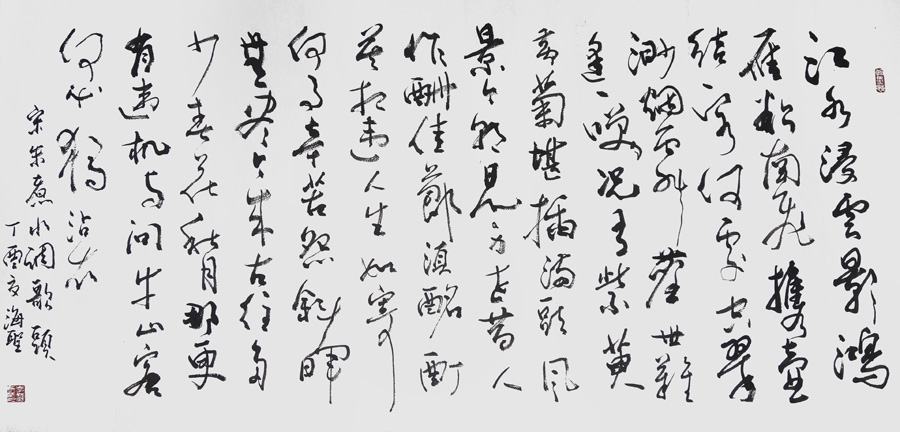 江水浸雲影鴻
雁欲南飛携壶
结客何處空翠
渺烟霏塵世難
逢一嘆况有紫萸
黄菊堪插满头風
景今朝見身世昔人
作酬佳節須酩酊
莫相違人生如寄
何事辛苦怨斜暉
無尽今来古往多
少春花秋月那更
有違机与问牛山客
何必獨沾衣
宋朱熹水调歌頭
丁酉夏海聖